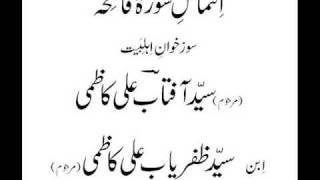 التماسِ سورۂ فاتحہ
سوز خوانِ اہلبیت
(مرحوم) سیّد آفتاب علی کاظمی
ابن سیّد ظفریاب علی کاظمی (مرحوم)